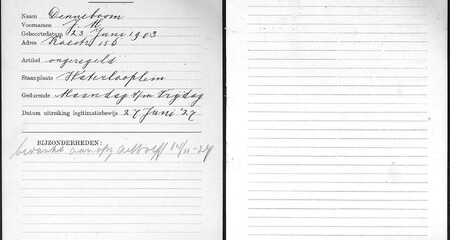 Naam Denneboom
Voornamen J. M.
Geboortedatum 23 Juni 1903
Adres 150
Artikel ongeregeld
Staanplaats Waterlooplein
Gedurende Maandag t/m Vrijdag
Datum uitreiking legitimatiebewijs 27 Juni '27
BIJZONDERHEDEN: